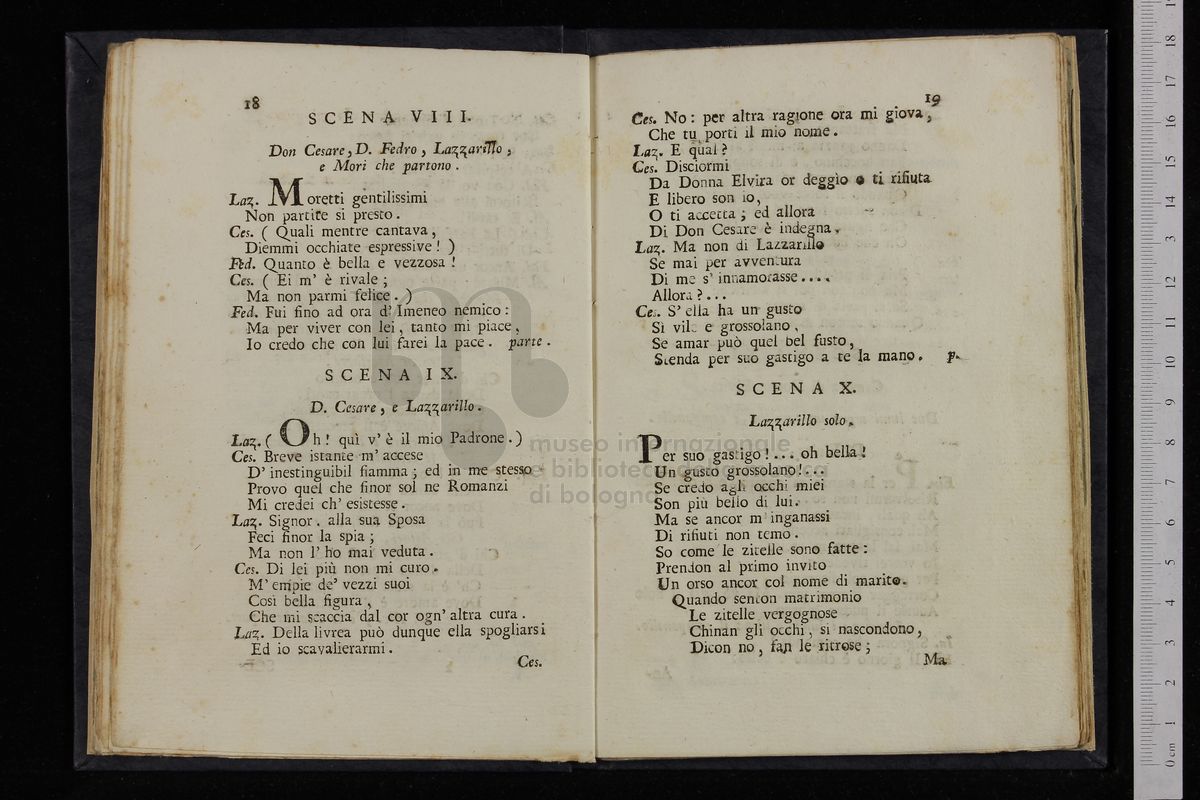 18
SCENA VIII.
Don Cesare, D. Fedro, Lazzarillo,
e Mori che partono.
Laz. Moretti gentilissimi
Non partite si presto.
Ces. ( Quali mentre cantava,
Diemmi occhiate espressive! )
Fed. Quanto è bella e vezzosa!
Ces. ( Ei m' è rivale;
Ma non parmi felice. )
Fed. Fui fino ad ora d' Imeneo nemico:
Ma per viver con lei, tanto mi piace,
Io credo che con lui farei la pace. parte.
SCENA IX.
D. Cesare, e Lazzarillo.
Laz. ( Oh! quì v' è il mio Padrone. )
Ces. Breve istante m' accese
D' inestinguibil fiamma; ed in me stesso
Provo quel che finor sol ne Romanzi
Mi credei ch' esistesse.
Laz. Signor. alla sua Sposa
Feci finor la spia;
Ma non l' ho mai veduta.
Ces. Di lei più non mi curo.
M' empie de' vezzi suoi
Così bella figura,
Che mi scaccia dal cor ogn' altra cura.
Laz. Della livrea può dunque ella spogliarsi
Ed io scavalierarmi.
Ces.
19
Ces. No: per altra ragione ora mi giova,
Che tu porti il mio nome.
Laz. E qual?
Ces. Disciormi
Da Donna Elvira or deggio o ti rifiuta
E libero son io,
O ti accetta; ed allora
Di Don Cesare è indegna.
Laz. Ma non di Lazzarillo
Se mai per avventura
Di me s' innamorasse....
Allora?...
Ces. S' ella ha un gusto
Sì vile e grossolano,
Se amar può quel bel fusto,
Stenda per suo gastigo a te la mano. p.
SCENA X.
Lazzarillo solo.
Per suo gastigo!... oh bella!
Un gusto grossolano!...
Se credo agli occhi miei
Son più bello di lui.
Ma se ancor m' inganassi
Di rifiuti non temo.
So come le zitelle sono fatte:
Prendon al primo invito
Un orso ancor col nome di marito.
Quando senton matrimonio
Le zitelle vergognose
Chinan gli occhi, si nascondono,
Dicon no, fan le ritrose;
Ma
museo internazionale
e biblioteca della musica
di bologna
0 cm 1 2 3 4 5 6 7 8 9 10 11 12 13 14 15 16 17 18